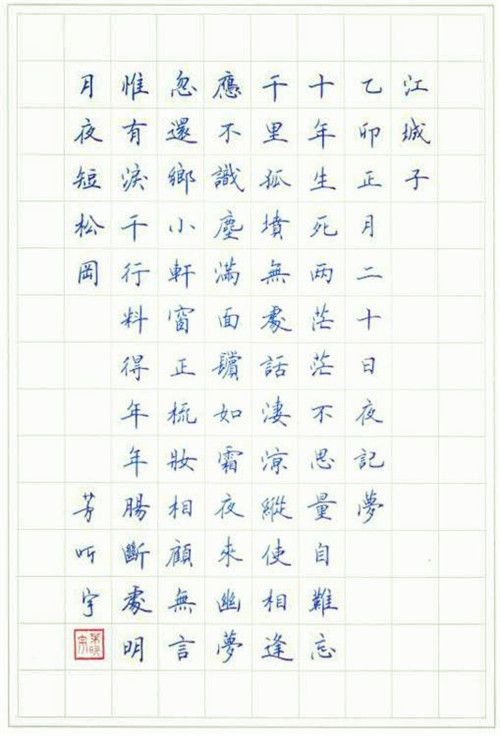 江城子
乙卯正月二十日夜記夢
十年生死两茫茫不思量自難忘
千里孤墳無處話淒涼縱使相逢
應不識塵滿面鬢如霜夜來幽夢
忽還鄉小軒窗正梳妝相顧無言
惟有淚千行料得年年腸斷處明
月夜短松岡
芳听宇